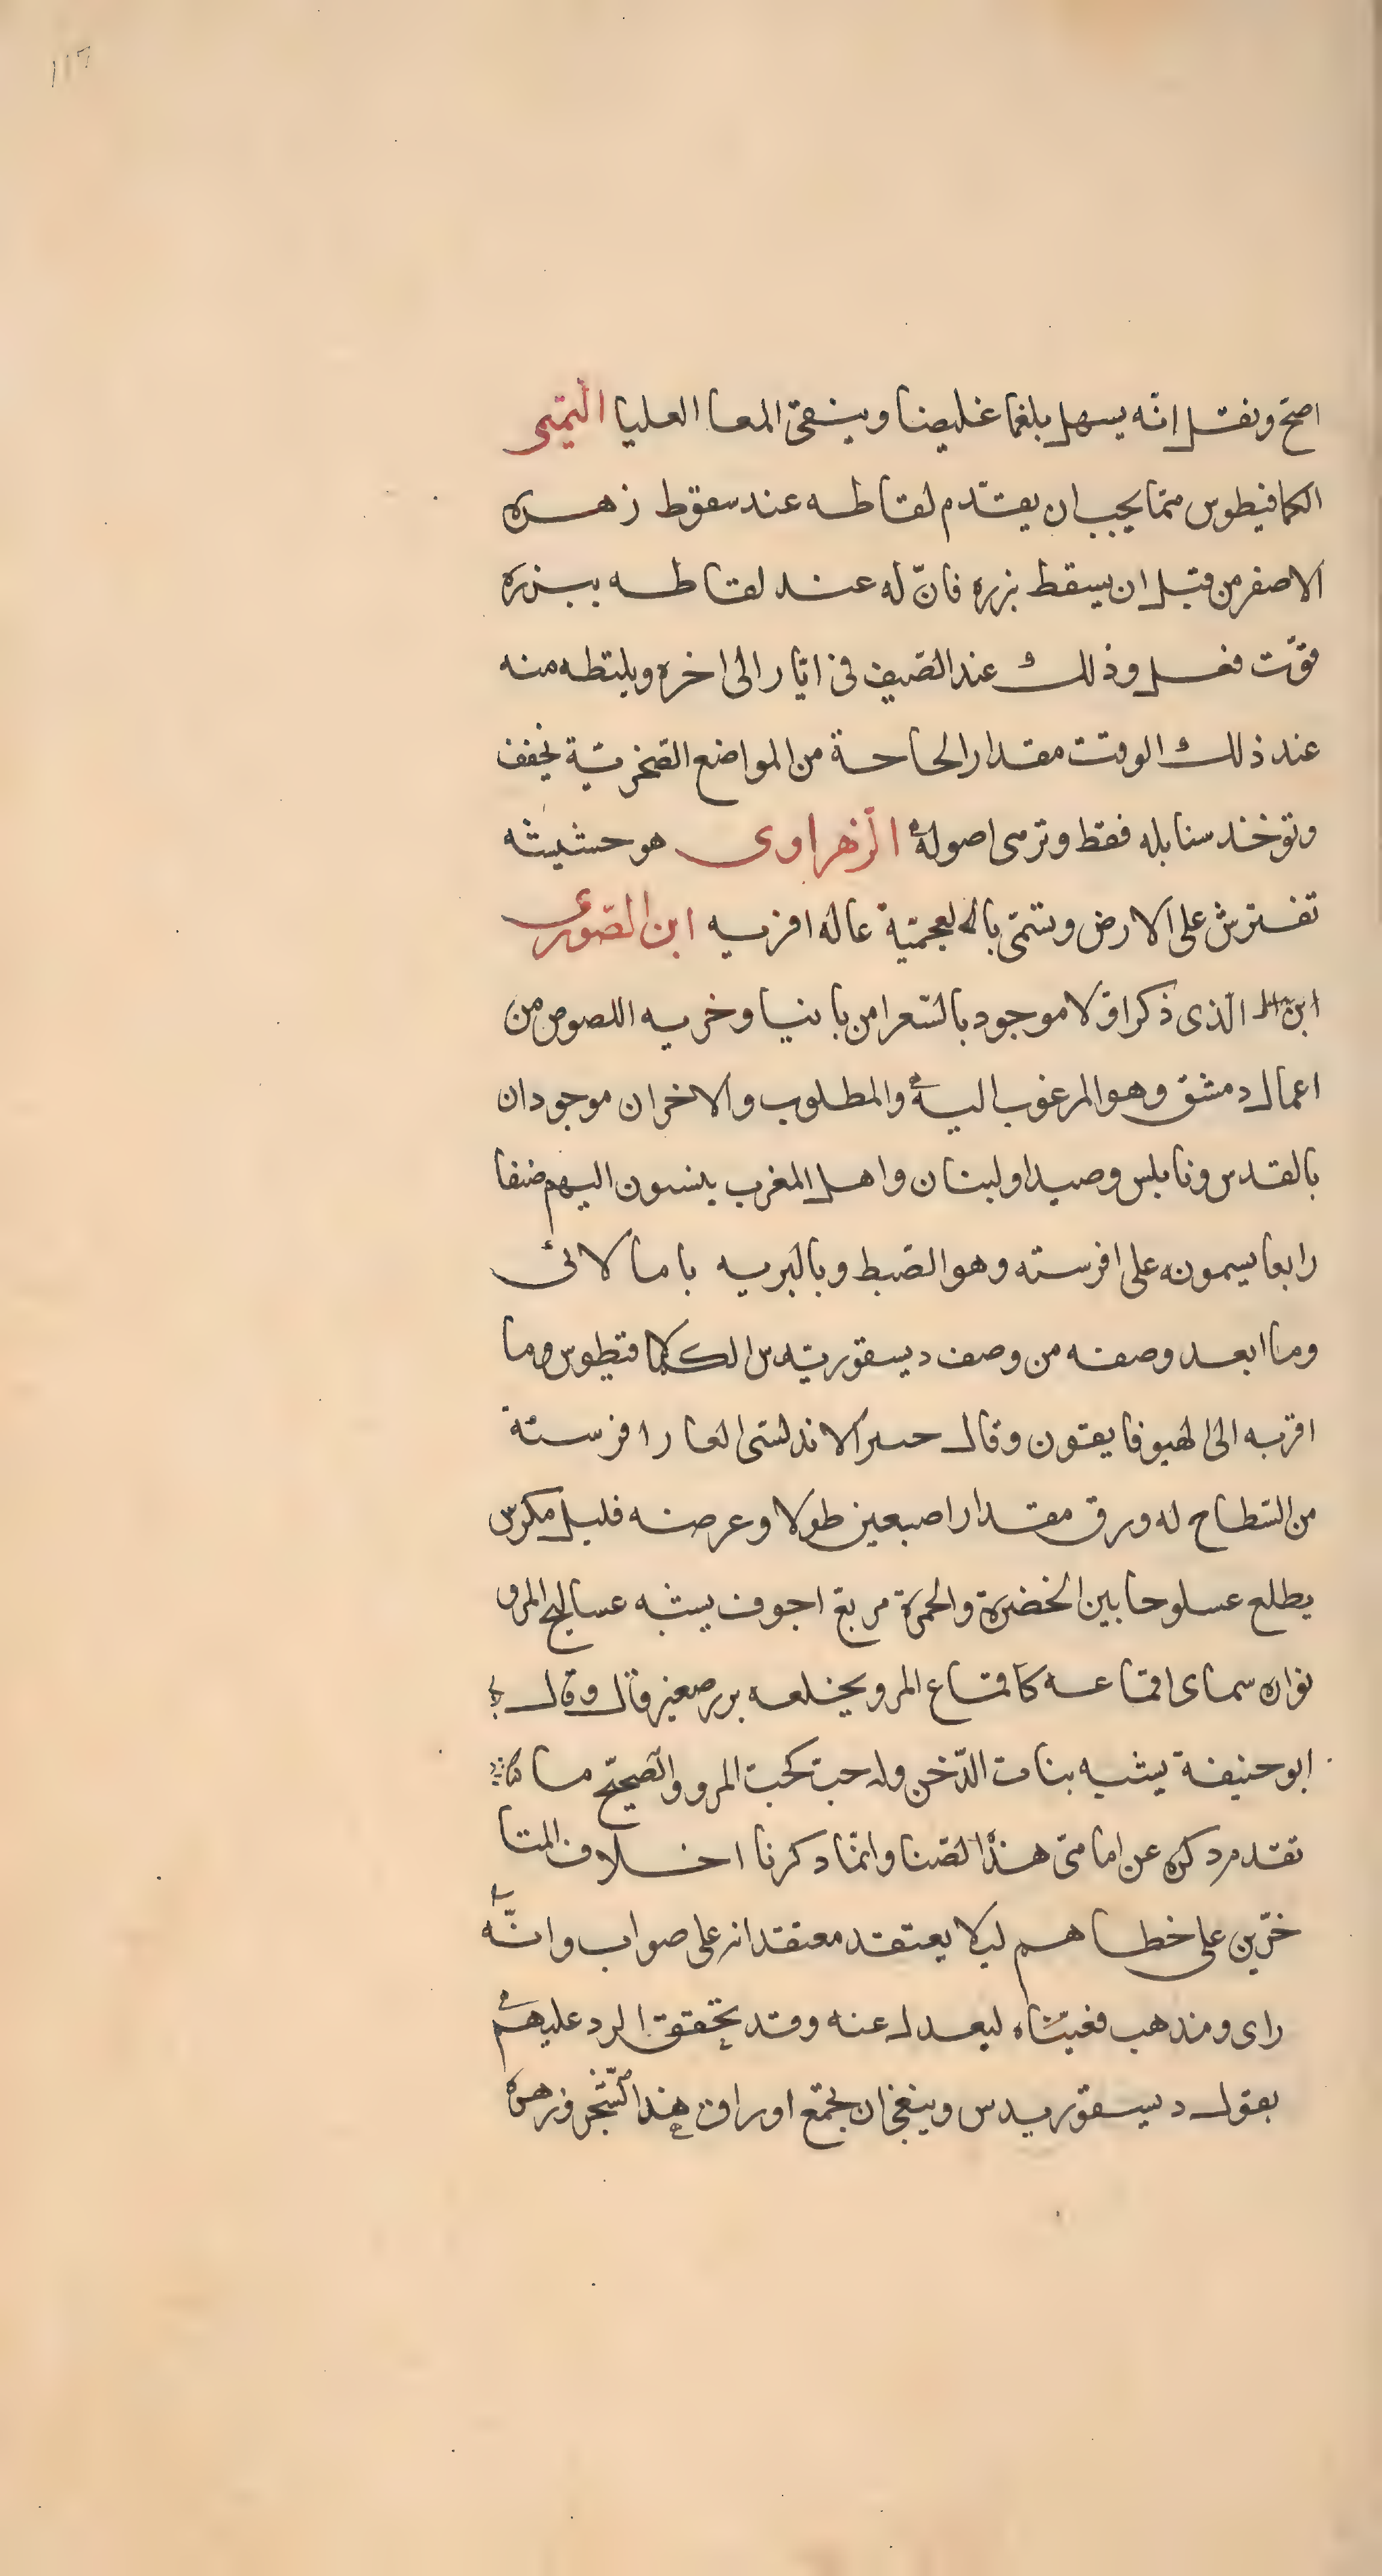 ١١٦
اصحّ ونقل انّه يسهل بلغما غليضا وينقى المعا العليا التميمى
الكمافيطوس ممّا يجب ان يقدّم لقاطه عند سقوط زهره
الاصفر من قبل ان يسقط بزره فانّ له عند لقاطه ببزره
قوّت فعل وذلك عند الصّيف فى ايّار الى اخره ويلتطه منه
عند ذلك الوقت مقدار الحاحة من المواضع الصّخريّة يجفف
وتوخد سنابله فقط وترمى اصوله الزّهراوى هو حشيشه
تفترش على الارض وتسمّى بالعجميّة عاله افزيه ابن الصّورى
الذى ذكر اوّلا موجود بالشعرا من بانيا وخربه اللصوص من
اعمال دمشق وهو المرغوب اليه والمطلوب والاخران موجودان
بالقدس ونابلس وصيدا ولبنان واهل المغرب ينسبون اليهم صنفا
رابعا يسمونه على افرسته وهو الضبط وبالبريه بامالانى
وما ابعد وصفه من وصف ديسقوريدس الكمافيطوس وما
اقربه الى الهيوفايقون وقال الاندلسى الغار افرستة
من السّطاح له ورق مقدار اصبعين طولا وعرضه قليل مكرّس
يطلع عسلوحا بين الخضرة والحمرة مربع اجوف يشبه عساليج المرو
نواره سماى اقماعه كاقماع المرو يخلعه بزر صغير قال وقال
ابو حنيفة يشبه بنات الدّخن وله حبّ كحبّ المرو والصّحيح ما
تقدم ذكره عن امامى هذا الصنا وانّما ذكرنا اختلاف المتا
خّرين على خطاهم ليلا يعتقد معتقد انه على صواب وانّه
راى ومذهب فغيّناه ليعدل عنه وقد تحقق الرد عليهم
بقول ديسقوريدس وينبغى ان يجمع اوراق هذا الشّجر وزهره